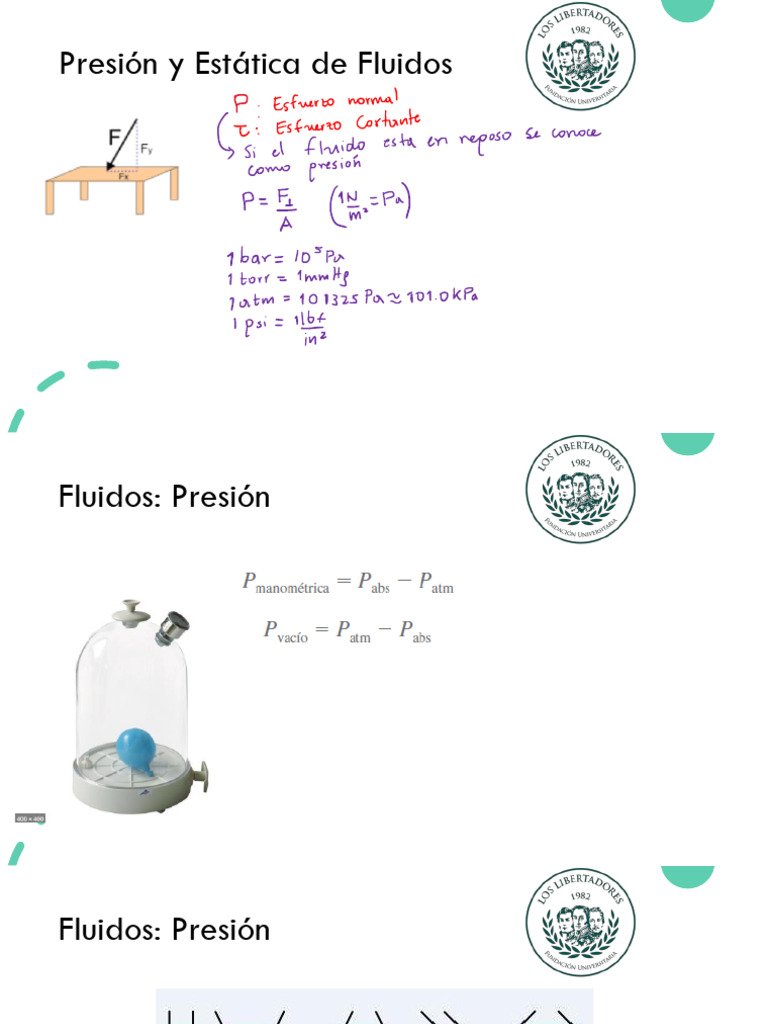 Presión y Estática de Fluidos
LOS LIBERTADORES
1982
FUNDACIÓN UNIVERSITARIA
P : Esfuerzo normal
τ : Esfuerzo Cortante
Si el fluido esta en reposo se conoce
como presión
F
Fy
Fx
P = F⊥/A (1N/m² = Pa)
1 bar = 10⁵ Pa
1 torr = 1mmHg
1 atm = 101325 Pa ≈ 101.0 kPa
1 psi = 1lbf/in²
Fluidos: Presión
LOS LIBERTADORES
1982
FUNDACIÓN UNIVERSITARIA
P manométrica = P abs − P atm
P vacío = P atm − P abs
400 × 489
Fluidos: Presión
LOS LIBERTADORES
1982
FUNDACIÓN UNIVERSITARIA